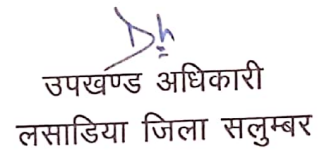 उपखण्ड अधिकारी
लसाडिया जिला सलुम्बर